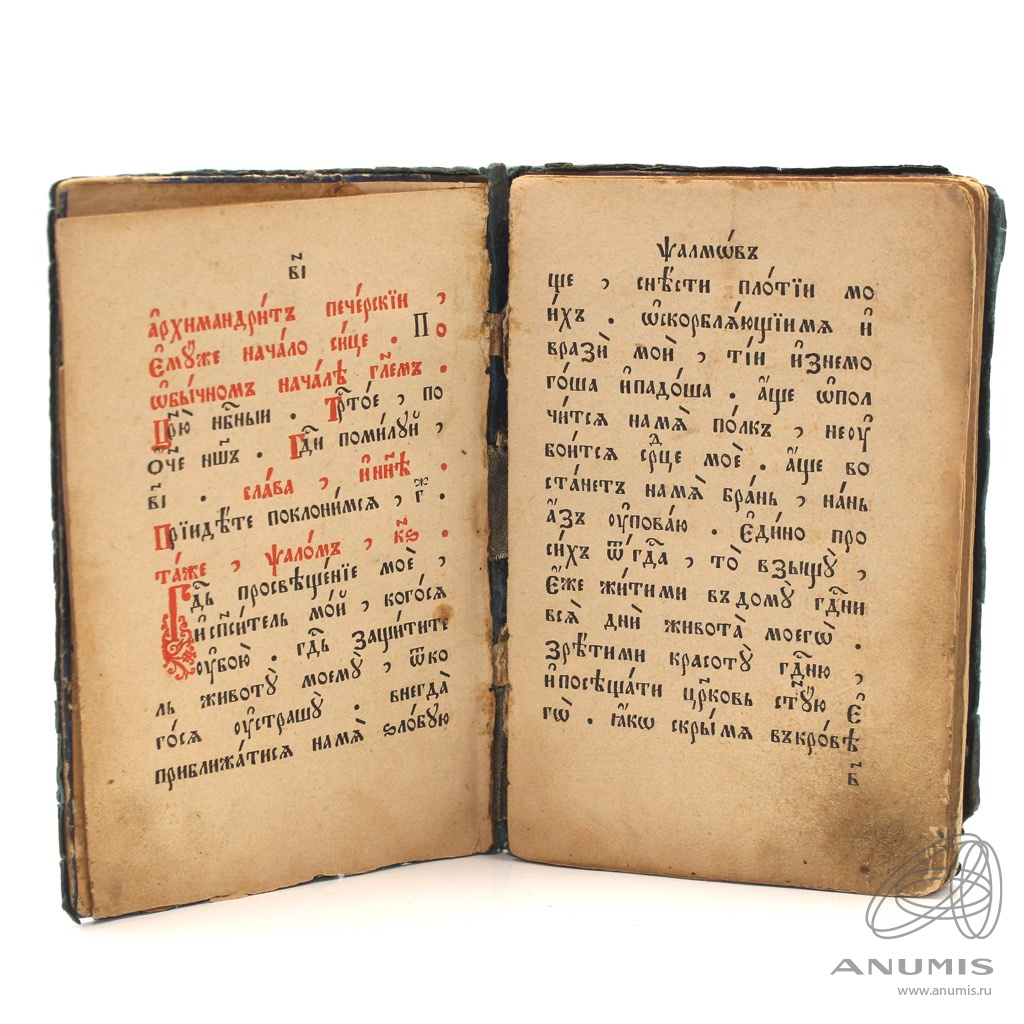 в҃і
а҆рхимандри́тъ пече́рскїи ,
є҆му́же нача́ло си́це . По
ѡ҆бы́чномъ нача́лѣ гл҃емъ .
Цр҃ю нб҃ныи . Трⷭ҇то́е , по
ѻ҆́ч҃е нш҃ъ . Гдⷭ҇и поми́луй ,
в҃і . сла́ва , и҆ нн҃ѣ .
Прїидѣ́те поклони́мся , г҃ж .
та́же , ѱало́мъ , к҃ѕ .
Гдⷭ҇ь просвѣще́нїе мое́ ,
и҆ сп҃си́тель мо́й , кого́ся
ѹ҆бою̀ . гдⷭ҇ь защи́тите
ль животу̀ моему̀ , ѿ ко
го́ся ѹ҆страшу̀ . внегда̀
приближа́тися намѧ̀ ѕло́бую
ѱалмѡ́въ
ще , снѣ́сти пло́тїи мо
и́хъ . ѡ҆скорблѧ́ющїимѧ и҆
врази̑ мои̑ , ті́и и҆знемо
го́ша и҆падо́ша . а҆́ще ѡ҆пол
чи́тся намѧ̀ по́лкъ , неѹ҆
бои́тся срⷣце моѐ . а҆́ще во
ста́нетъ намѧ̀ бра́нь , на́нь
а҆́зъ ѹ҆пова́ю . є҆ди́но про
си́хъ ѿ гдⷭ҇а , то̀ взыщу̀ ,
є҆́же жи́тими въ дому̀ гдⷭ҇ни
всѧ̀ дни̑ живота̀ моегѡ̀ .
зрѣ́тими красоту̀ гдⷭ҇ню ,
и҆ посѣща́ти цр҃ковь ст҃у́ю є҆
гѡ̀ . ꙗ҆́кѡ скры́ мя въ кро́вѣ
б҃
ANUMIS
www.anumis.ru